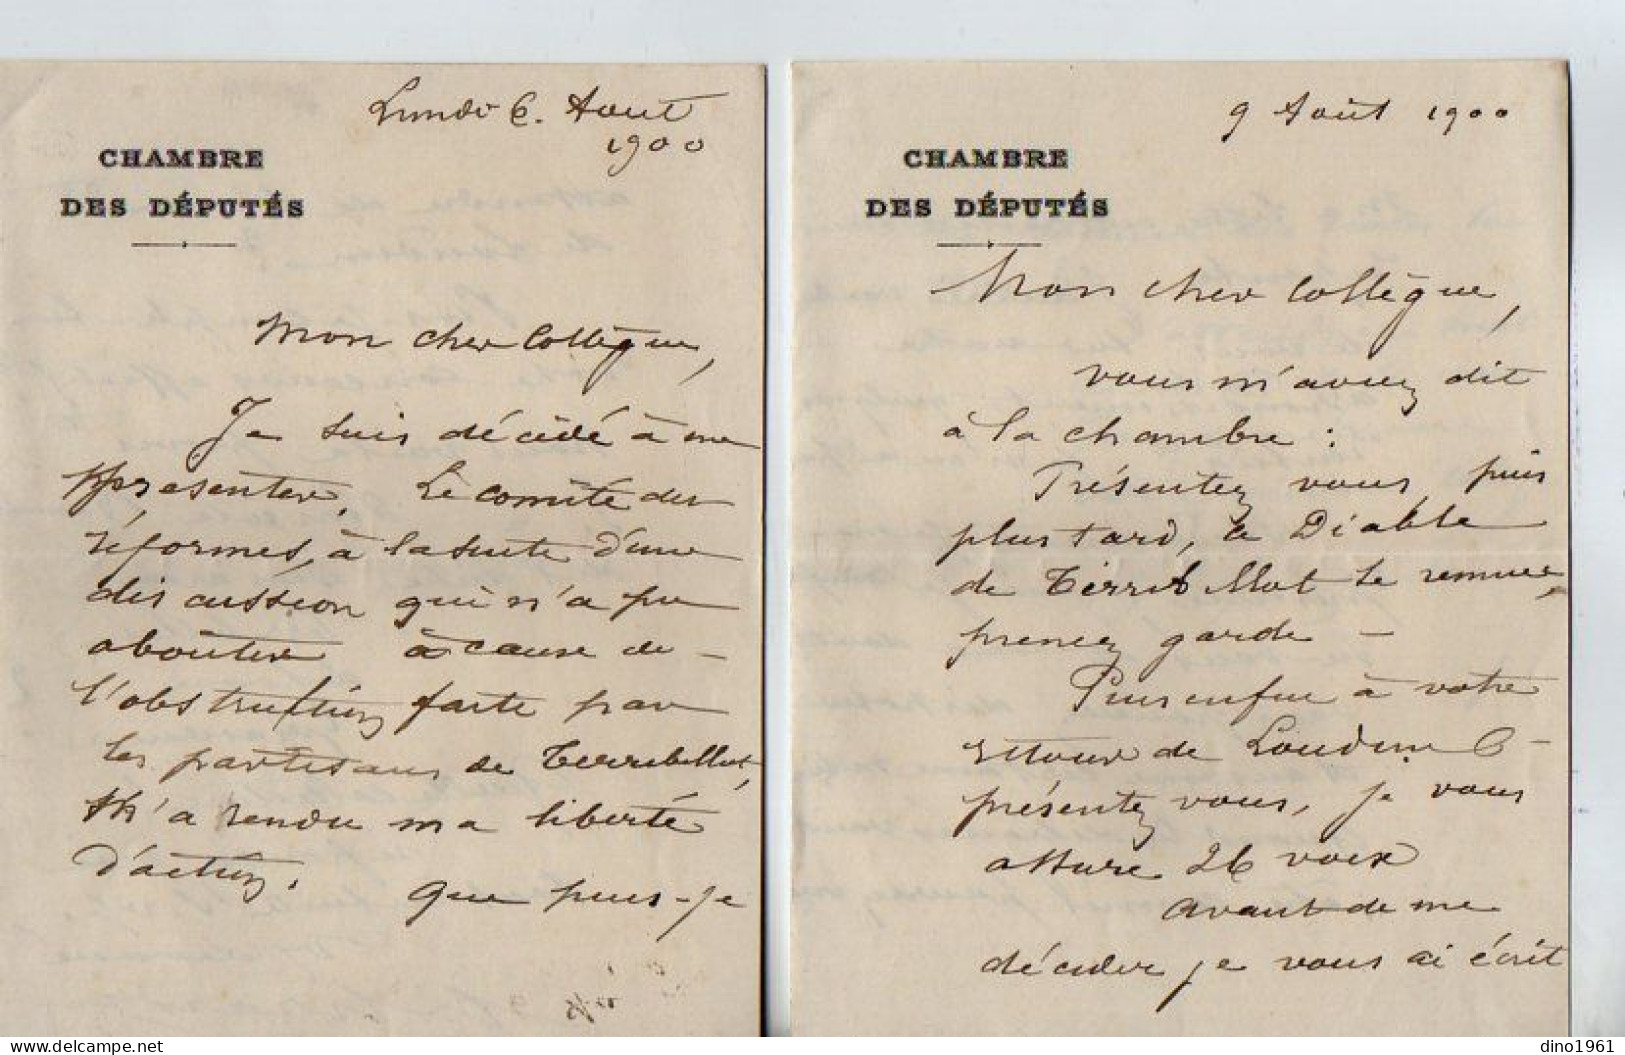 Lundi 6. Aout
1900
CHAMBRE
DES DÉPUTÉS
Mon cher Collègue,
Je suis décidé à me
présenter. Le comité des
réformes, à la suite d'une
discussion qui n'a pu
aboutir à cause de
l'obstruction faite par
les partisans de Terribillot,
m'a rendu ma liberté
d'action. Que puis-je
9 Août 1900
CHAMBRE
DES DÉPUTÉS
Mon cher Collègue,
vous m'avez dit
à la chambre :
Présentez vous, puis
plus tard, ce Diable
de Terribillot se remue,
prenez garde —
Puis enfin à votre
retour de Loudun
présentez vous, je vous
assure 26 voix
Avant de me
décider je vous ai écrit
dino1961